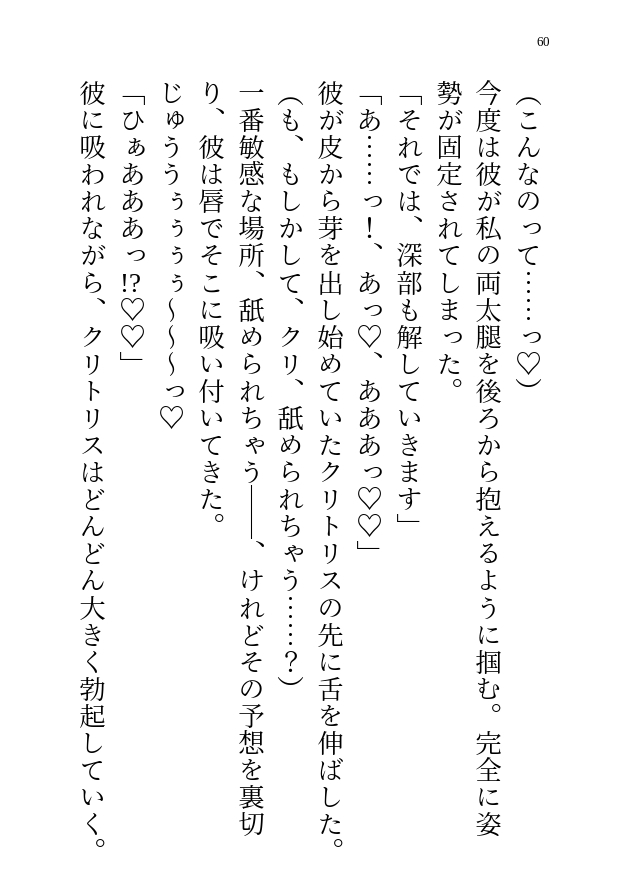 60
（こんなのって……っ♡）
今度は彼が私の両太腿を後ろから抱えるように掴む。完全に姿
勢が固定されてしまった。
「それでは、深部も解していきます」
「あ……っ！、あっ♡、あああっ♡♡」
彼が皮から芽を出し始めていたクリトリスの先に舌を伸ばした。
（も、もしかして、クリ、舐められちゃう……？）
一番敏感な場所、舐められちゃう――、けれどその予想を裏切
り、彼は唇でそこに吸い付いてきた。
じゅううぅぅぅぅ～～～っ♡
「ひぁあああっ!?♡♡」
彼に吸われながら、クリトリスはどんどん大きく勃起していく。